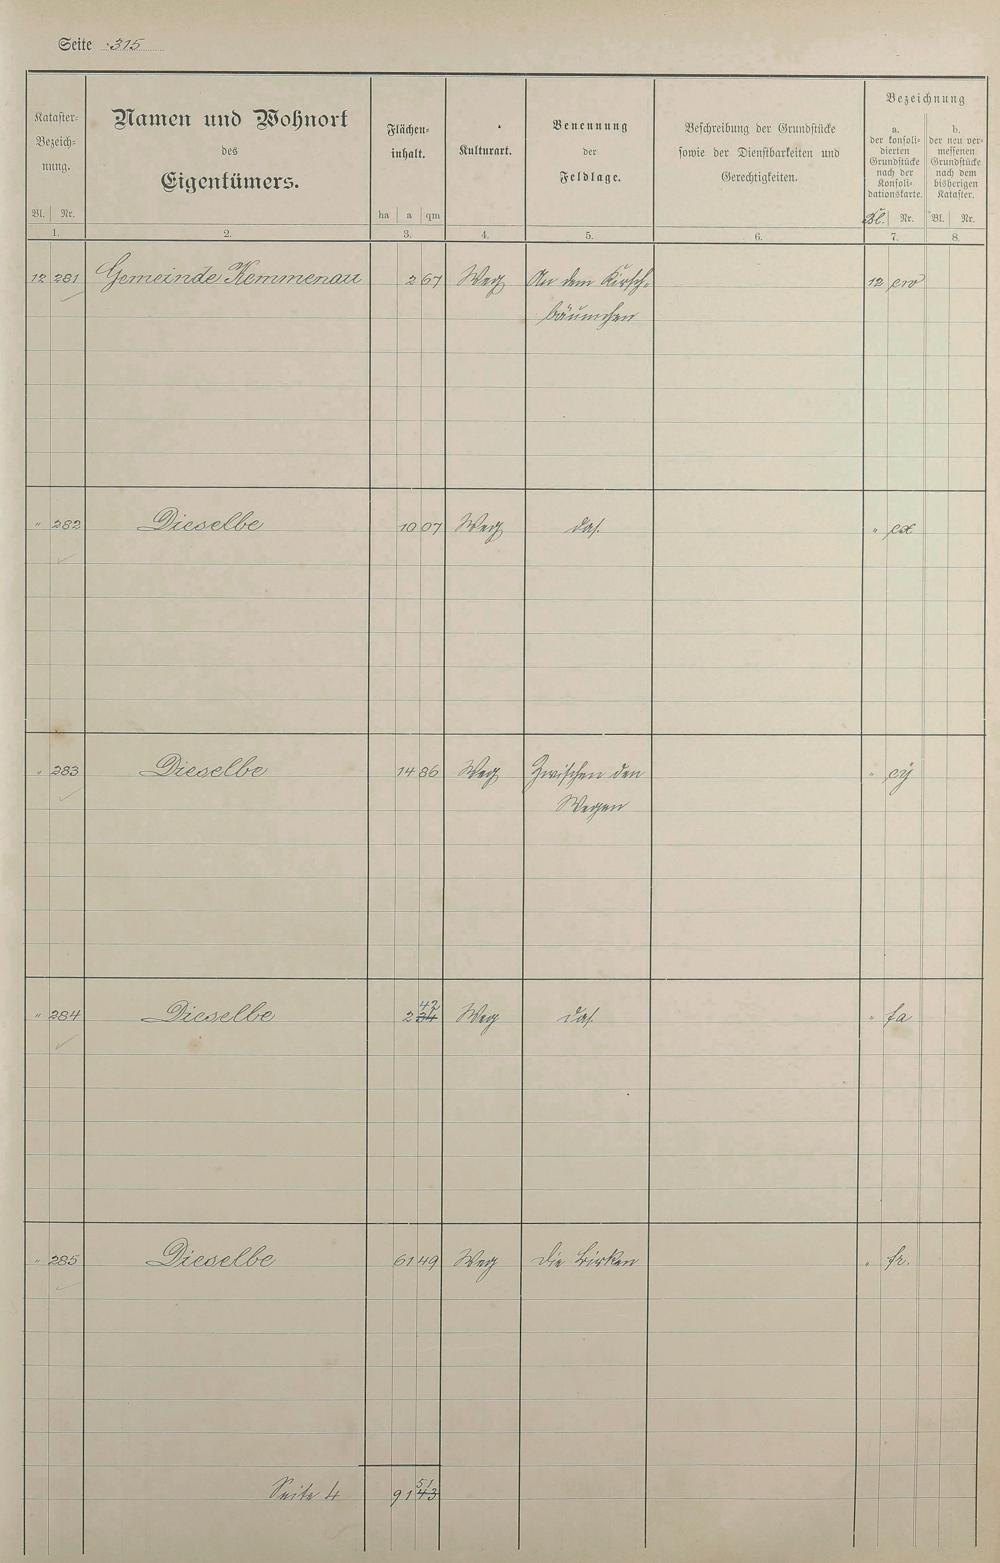 Seite 315
Kataster-
Bezeich-
nung.
Bl. Nr.
1.
Namen und Wohnort
des
Eigentümers.
2.
Flächen-
inhalt.
ha a qm
3.
Kulturart.
4.
Benennung
der
Feldlage.
5.
Beschreibung der Grundstücke
sowie der Dienstbarkeiten und
Gerechtigkeiten.
6.
Bezeichnung
a.
der konsoli-
dierten
Grundstücke
nach der
Konsoli-
dationskarte.
Bl. Nr.
7.
b.
der neu ver-
messenen
Grundstücke
nach dem
bisherigen
Kataster.
Bl. Nr.
8.
12 281 Gemeinde Kemmenau 2 67 Weg An dem Kirsch- 12 ew
bäumchen
" 282 Dieselbe 10 07 Weg das. " ex
" 283 Dieselbe 14 86 Weg Zwischen den " ey
Wegen
42
" 284 Dieselbe 2 34 Weg das. " fa
" 285 Dieselbe 61 49 Weg die Birken " fr.
51
Seite 4 91 43